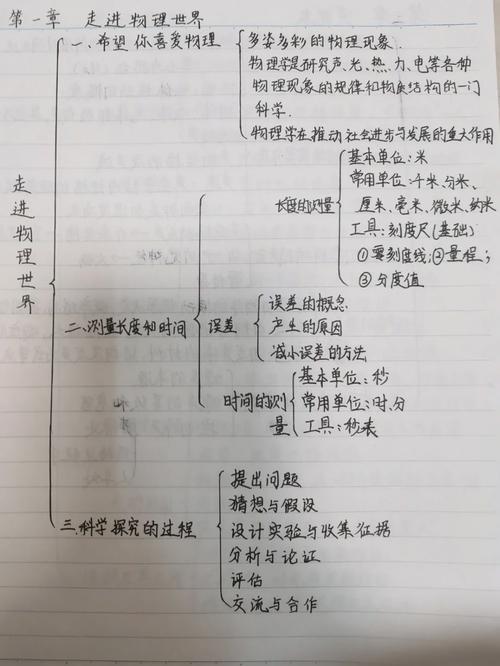 第一章 走进物理世界
走进物理世界
一、希望你喜爱物理
多姿多彩的物理现象.
物理学是研究声、光、热、力、电等各种
物理现象的规律和物质结构的一门
科学.
物理学在推动社会进步与发展的重大作用
二、测量长度和时间
长度的测量
基本单位:米
常用单位:千米、分米、
厘米、毫米、微米、纳米
工具:刻度尺(基础)
①零刻度线;②量程;
③分度值
误差
误差的概念
产生的原因
减小误差的方法
时间的测
量
基本单位:秒
常用单位:时、分
工具:秒表
三.科学探究的过程
提出问题
猜想与假设
设计实验与收集证据
分析与论证
评估
交流与合作